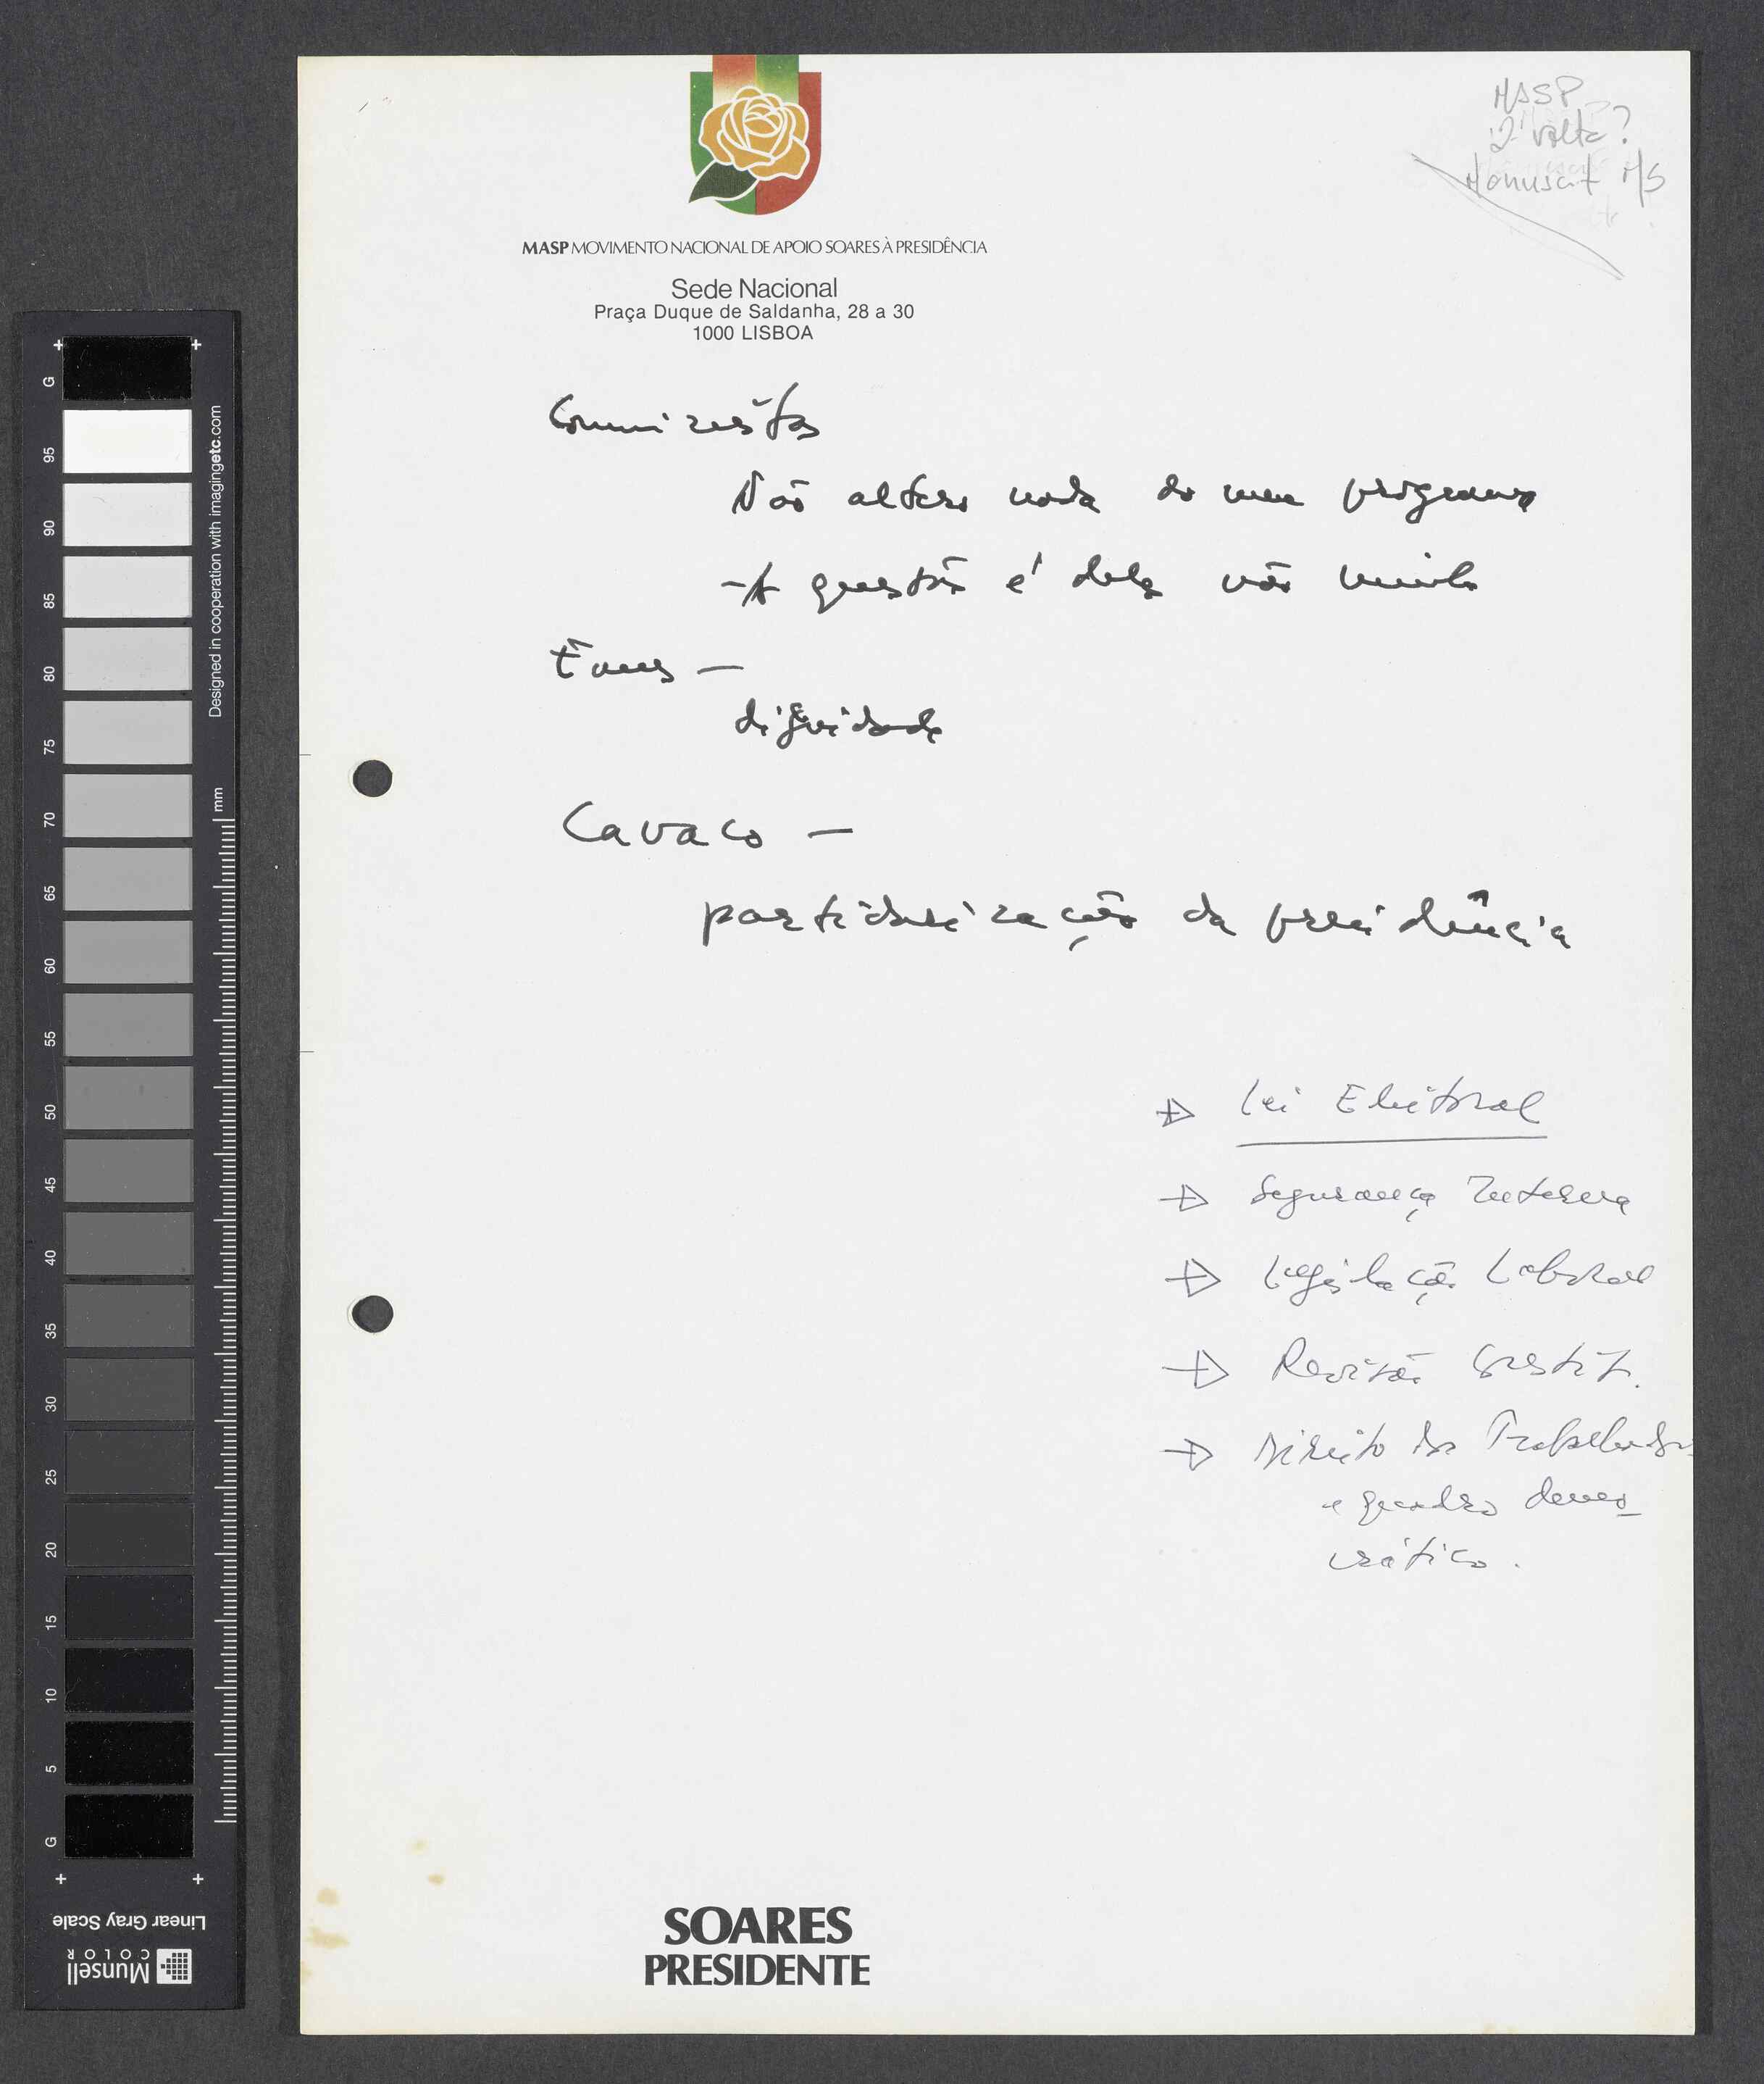 MASP
2ª volta?
Manuscrit MS
MASP MOVIMENTO NACIONAL DE APOIO SOARES À PRESIDÊNCIA
Sede Nacional
Praça Duque de Saldanha, 28 a 30
1000 LISBOA
Comunistas
Não altero nada do meu programa
- A questão é deles não minha
Eanes —
dignidade
Cavaco —
partidarização da presidência
Lei Eleitoral
Segurança Interna
Legislação Laboral
Revisão Constit.
Direito dos Trabalhadores
e quadro demo_
crático.
SOARES
PRESIDENTE
G
95
90
85
80
75
70
65
60
55
50
45
40
35
30
25
20
15
10
5
G
Designed in cooperation with imagingetc.com
mm
Linear Gray Scale
Munsell
COLOR